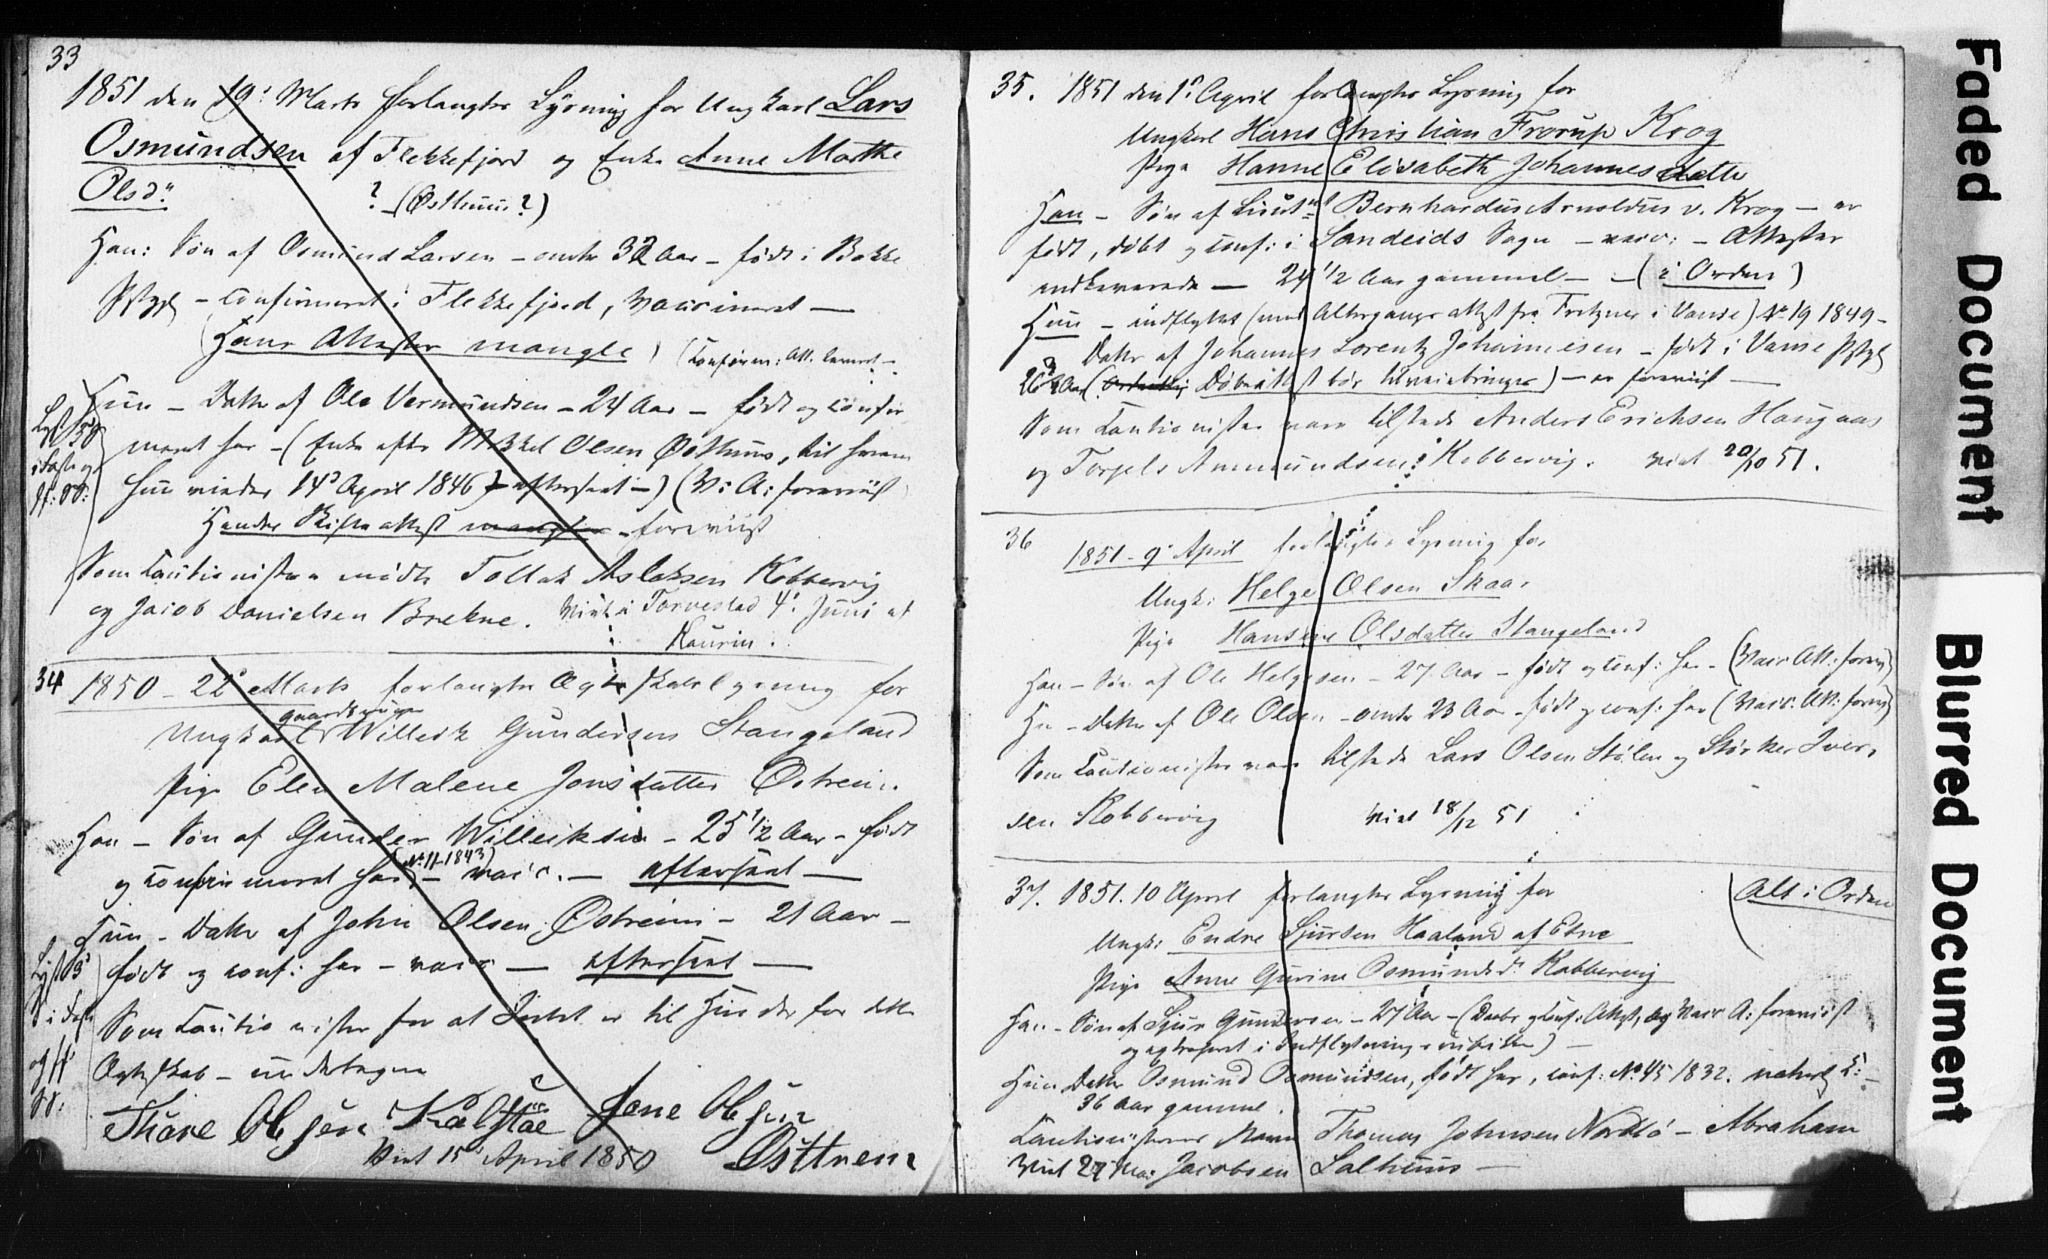 33
1851 den 19de Marts forlangtes Lysning for Ungkarl Lars
Osmundsen af Flekkefjord og Enke Anne Marthe
Olsd.
? (Østhuus?)
Han: Søn af Osmund Larsen – omtr 32 Aar – født i Bokke
Pstgjd – confirmeret i Flekkefjord, vaccineret –
(Hans Attester mangle) (Confirm: Att. leveret –
Hun – Datter af Ole Vermundsen – 24 Aar – født og confir
meret her – (Enke efter Mikkel Olsen Østhuus, til hvem
hun viedes 14de April 1846 – efterseet –) (V: A: foreviist)
Hendes Skifteattest mangler – foreviist
Som Cautionister mødte Tollak Aslaksen Kobbervig
og Jacob Danielsen Brekne. Viet i Torvestad 4de Juni af
Kaurin.
34 1850 – 22de Marts forlangtes Ægteskabslysning for
gaardbruger
Ungkarl Willeik Gundersen Stangeland
Pige Elen Malene Jonsdatter Østreim.
Han – Søn af Gunder Willeiksen – 25 1/2 Aar – født
(No 11–1843)
og confirmeret her, – vacc. – efterseet –
Hun – Datter af John Olsen Østreim – 21 Aar –
født og conf: her – vacc – efterseet –
Som Cautionister for at Intet er til Hinder for dette
Ægteskab – undertegne
Thore Olsen Kalstøe Jone Olsen
Østtrem
Viet 15de April 1850
35. 1851 den 1ste April forlangtes Lysning for
Ungkarl Hans Christian Frorup Krog
Pige Hanne Elisabeth Johannesdatter
Han – Søn af Lieutnt Bernhardus Arnoldus v. Krog – er
født, døbt og conf: i Sandeids Sogn – vacc: – Attester
indleverede – 24 1/2 Aar gammel – (i Orden)
Hun – indflyttet (med Altergangsattest fra Fritzner i Vanse) No 19 1849 –
Datter af Johannes Lorentz Johannesen – født i Vanse Pstgjd
26 Aar ( Døbeattest bør tilveiebringes) – er foreviist –
Som Cautionister vare tilstede Anders Erichsen Haugaas
og Torjels Ammundsen Kobbervig. viet 20/10 51.
36 1851 – 9de April forlangtes Lysning for
Ungk: Helge Olsen Skaar
Pige Hansine Olsdatter Stangeland
Han – Søn af Ole Helgesen – 27 Aar – født og conf: her – (Vacc Att: forev)
Hun – Datter af Ole Olsen – omtr 23 Aar – født og conf: her (Vacc: Att: forev)
Som Cautionister vare tilstede Lars Olsen Stølen og Størker Iver
sen Kobbervig viet 18/12 51
37. 1851. 10 April forlangtes Lysning for (Alt i Orden
Ungk: Endre Sjursen Haaland af Etne
Pige Anne Gurine Osmundsd. Kobbervig
Han – Søn af Sjur Gundersen – 27 Aar – (Daabs og Conf: Attest, og Vacc A: foreviist
Hun Datter Osmund Osmundsen, født her, conf: No 45 1832. naturl K: –
36 Aar gammel.
Cautionisterne Navne Thomas Johnsen Nordbø – Abraham
Viet 27 Mai Jacobsen Salhuus –
Faded Document
Blurred Document